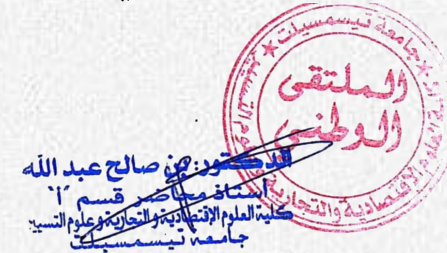 جامعة تيسمسيلت
الملتقى
الوطني
كلية العلوم الإقتصادية والتجارية وعلوم التسيير
الدكتور: بن صالح عبد الله
أستاذ محاضر قسم "أ"
كلية العلوم الإقتصادية والتجارية وعلوم التسيير
جامعة تيسمسيلت